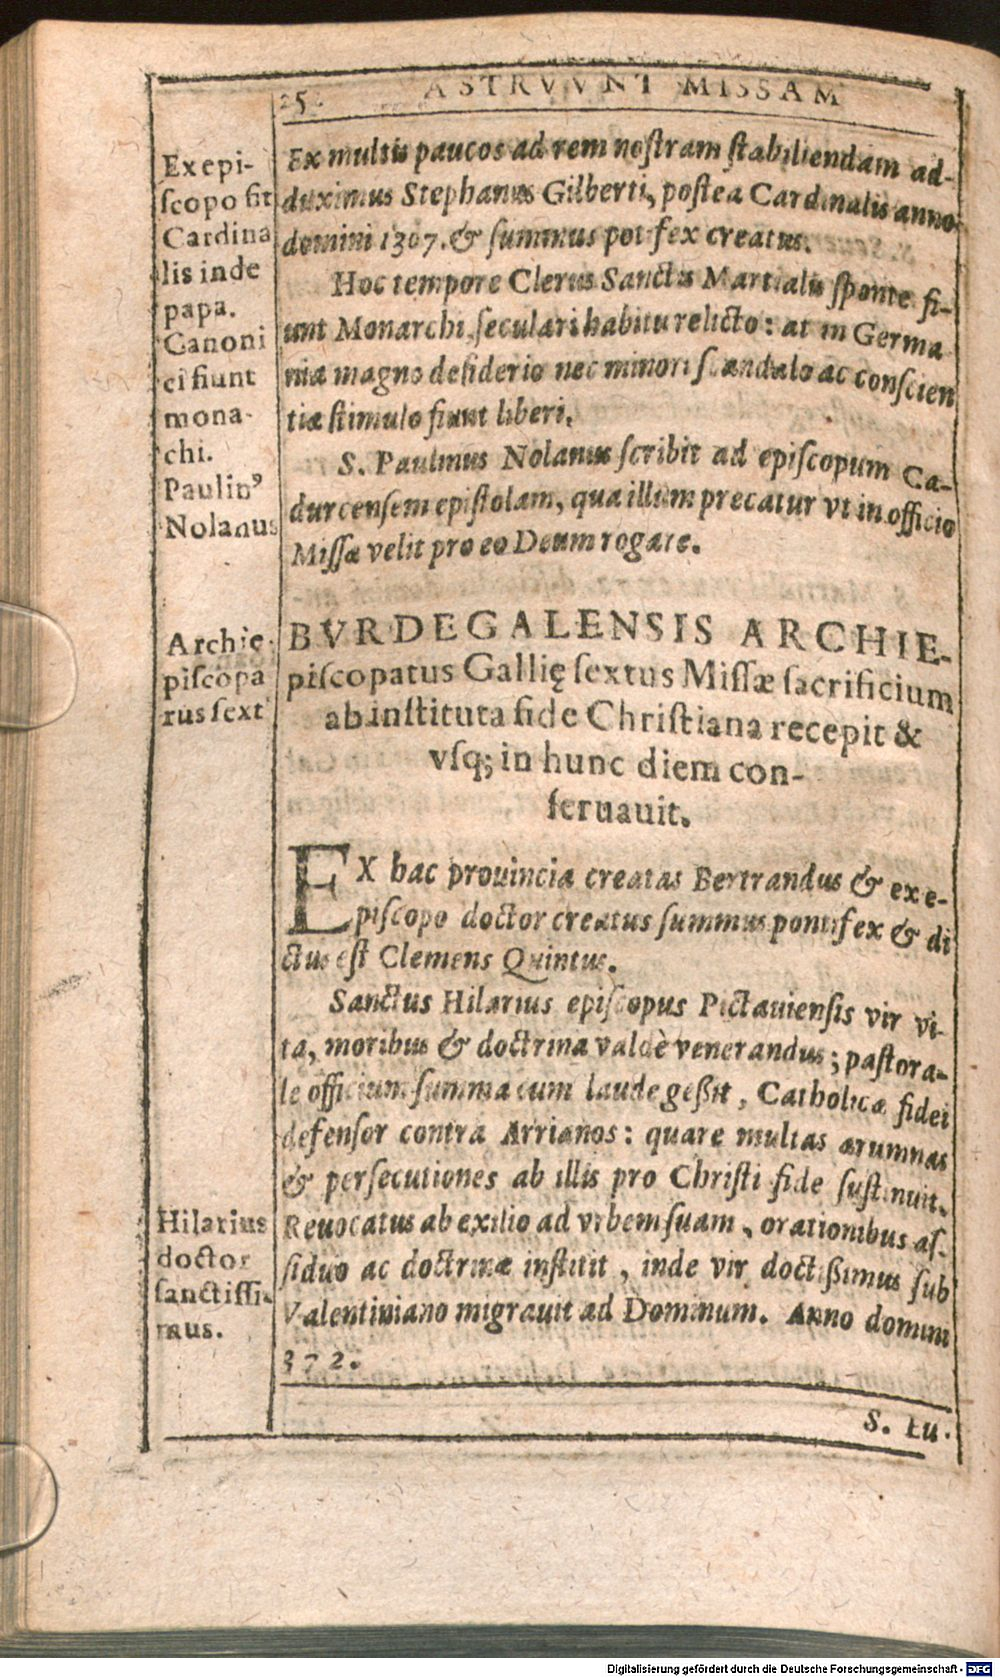 25. ASTRVVNT MISSAM
Ex epi-
scopo fit
Cardina
lis inde
papa.
Canoni
ci fiunt
mona-
chi.
Paulin⁹
Nolanus
Ex multis paucos ad rem nostram stabiliendam ad-
duximus Stephanus Gilberti, postea Cardinalis anno
domini 1307. & summus potifex creatus.
Hoc tempore Clerus Sanctis Martialis sponte fi-
unt Monarchi, seculari habitu relicto: at in Germa
nia magno desiderio nec minori scandalo ac conscien
tiæ stimulo fiunt liberi.
S. Paulinus Nolanus scribit ad episcopum Ca-
durcensem epistolam, qua illum precatur vt in officio
Missæ velit pro eo Deum rogare.
Archie-
piscopa
tus sext⁹
BVRDEGALENSIS ARCHIE-
piscopatus Gallię sextus Missæ sacrificium
ab instituta fide Christiana recepit &
vsq; in hunc diem con-
seruauit.
EX hac prouincia creatas Bertrandus & ex e-
piscopo doctor creatus summus pontifex & di
ctus est Clemens Quintus.
Sanctus Hilarius episcopus Pictauiensis vir vi-
ta, moribus & doctrina valdè venerandus; pastora-
le officium summa cum laude geßit, Catholicæ fidei
defensor contra Arrianos: quare multas ærumnas
& persecutiones ab illis pro Christi fide sustinuit.
Reuocatus ab exilio ad vrbem suam, orationibus as-
siduo ac doctrinæ institit, inde vir doctißimus sub
Valentiniano migrauit ad Dominum. Anno domini
372.
Hilarius
doctor
sanctissi-
mus.
S. Lu-
Digitalisierung gefördert durch die Deutsche Forschungsgemeinschaft - DFG